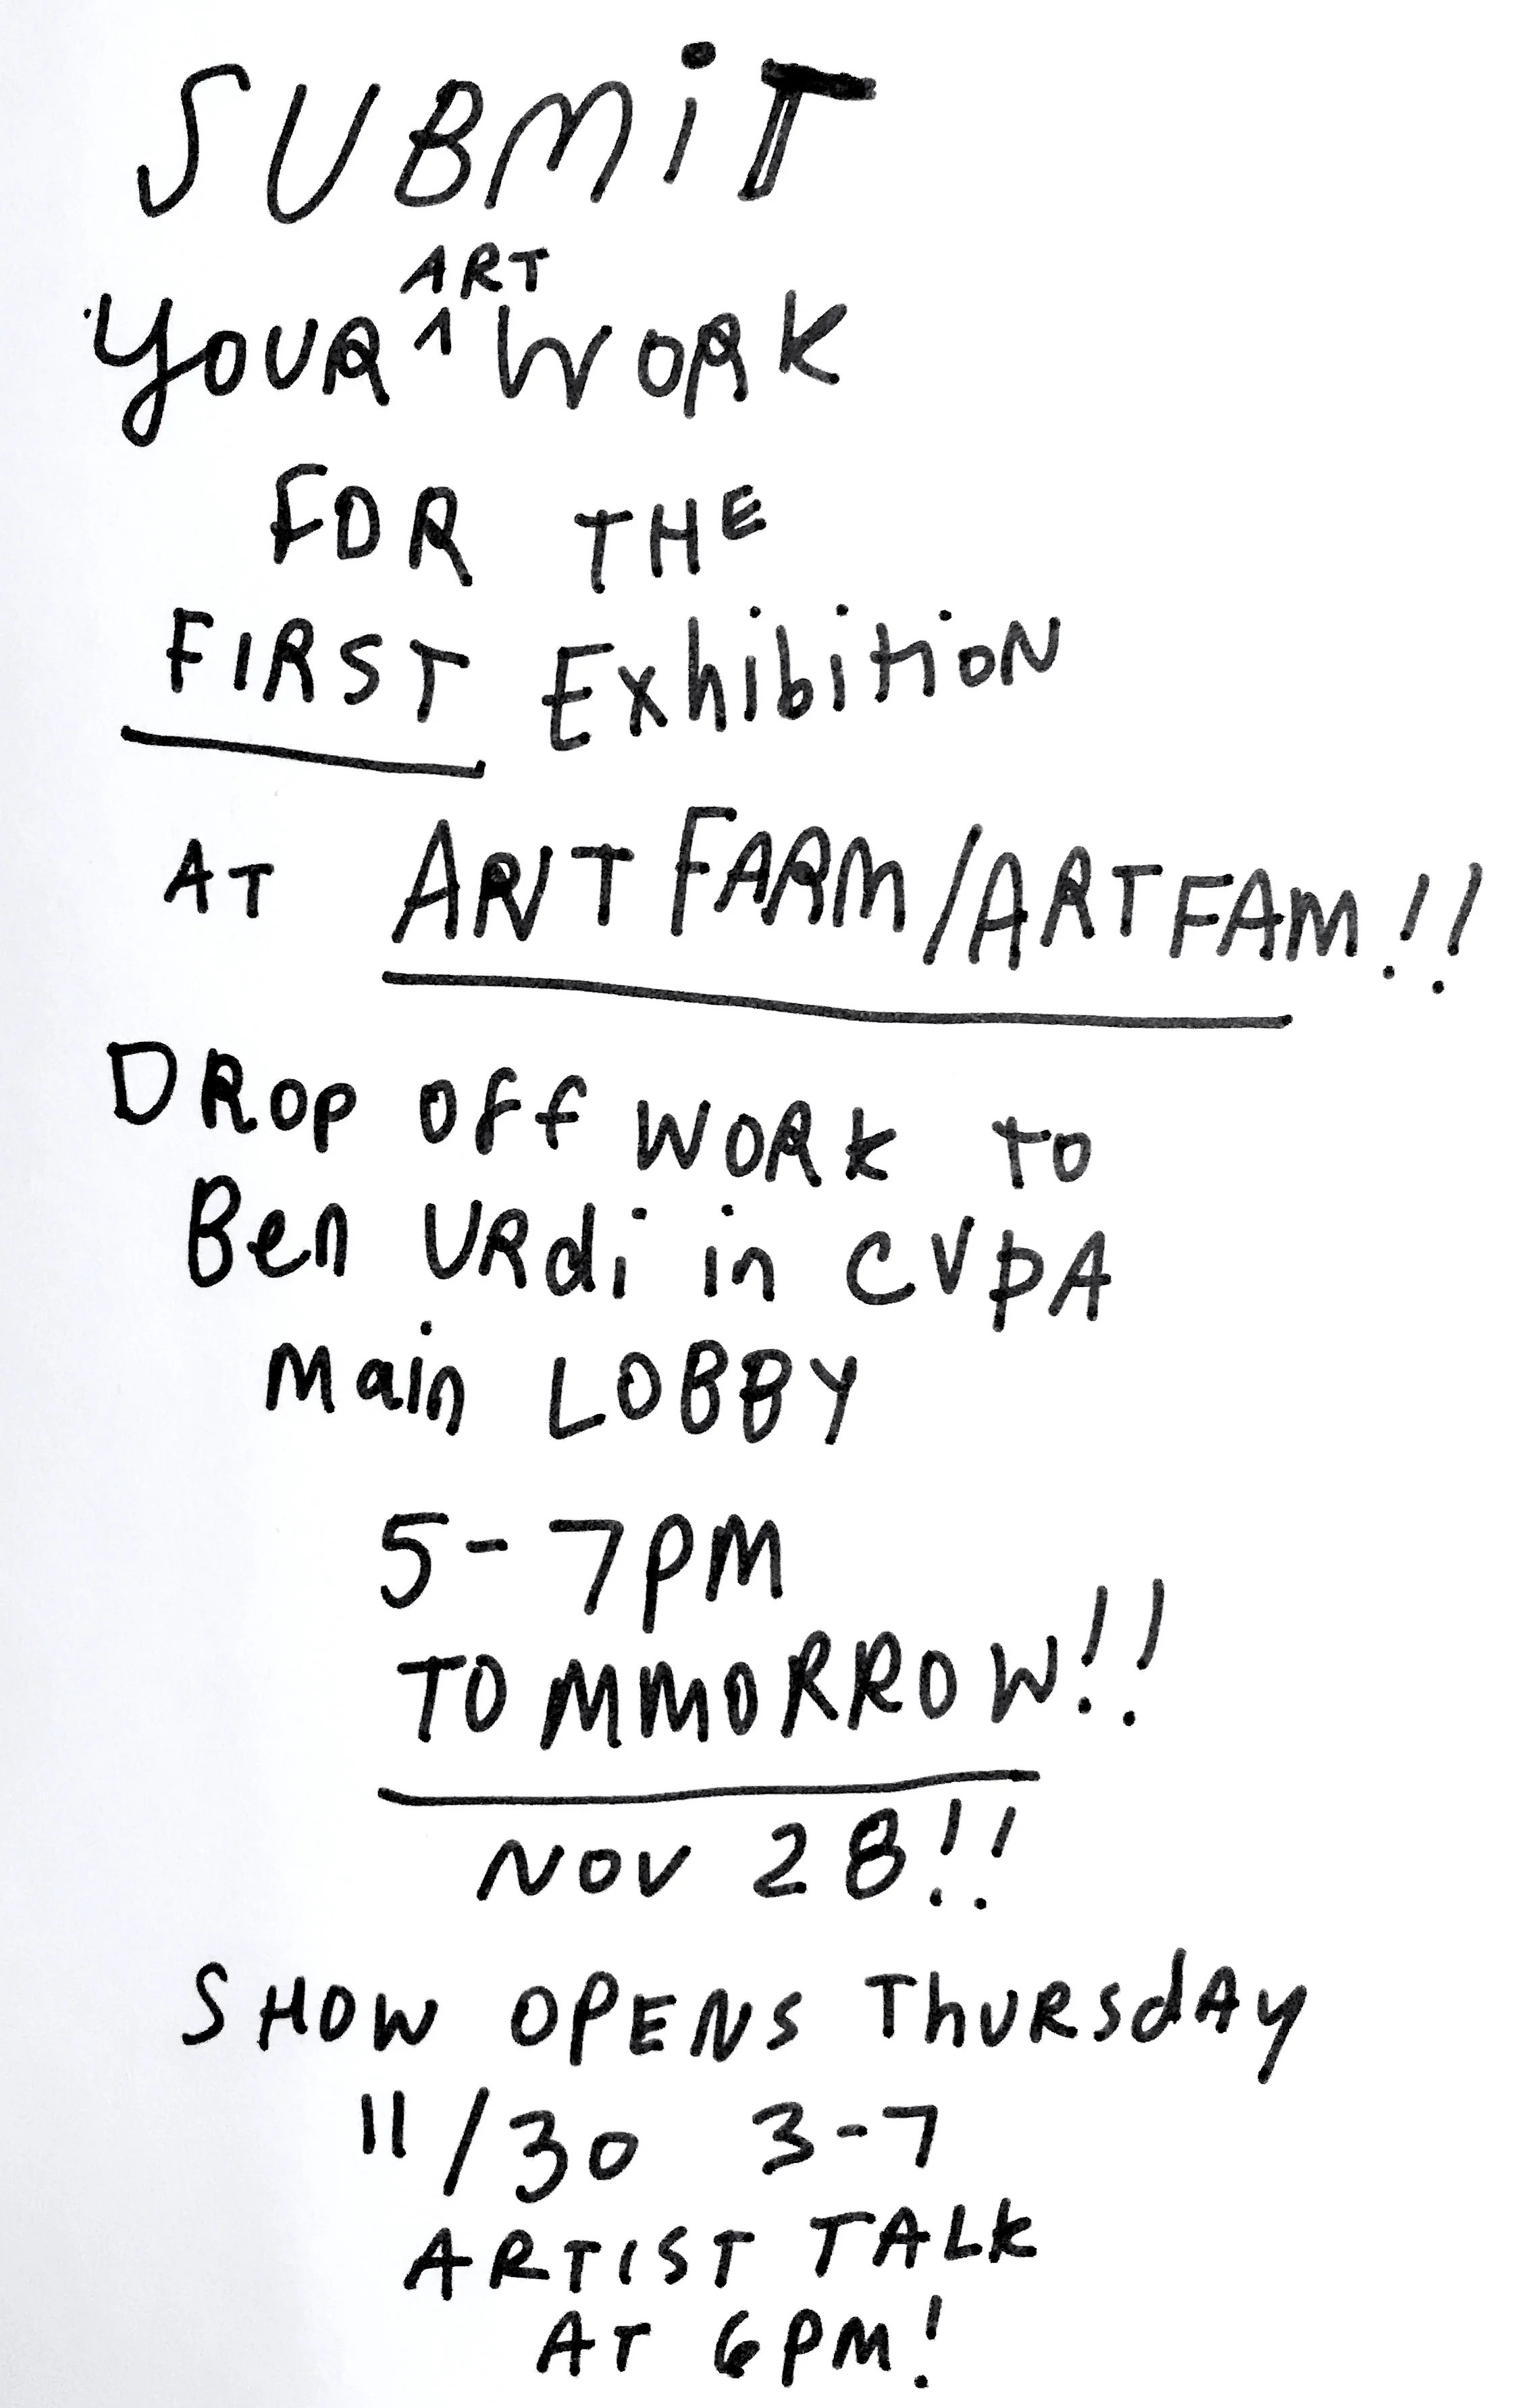 SUBMiT
YOUR ^ART WORK
FOR THE
FIRST ExhibitioN
AT ANT FARM/ARTFAM!!
DROp OFF WORK TO
Ben URdi in CVPA
Main LOBBY
5-7PM
TOMMORROW!!
NOV 28!!
SHOW OPENS ThURSdAy
11/30 3-7
ARTIST TALK
AT 6PM!